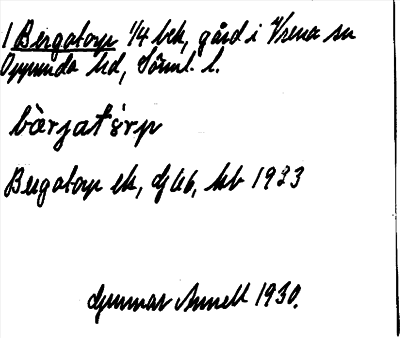 1 Bergatorp 1/4 bek, gård i Vrena sn
Oppunda hd, Söml. l.
bærjatørp
Bergatorp ek, djbb, hb 1923
Gunnar Annell 1930.